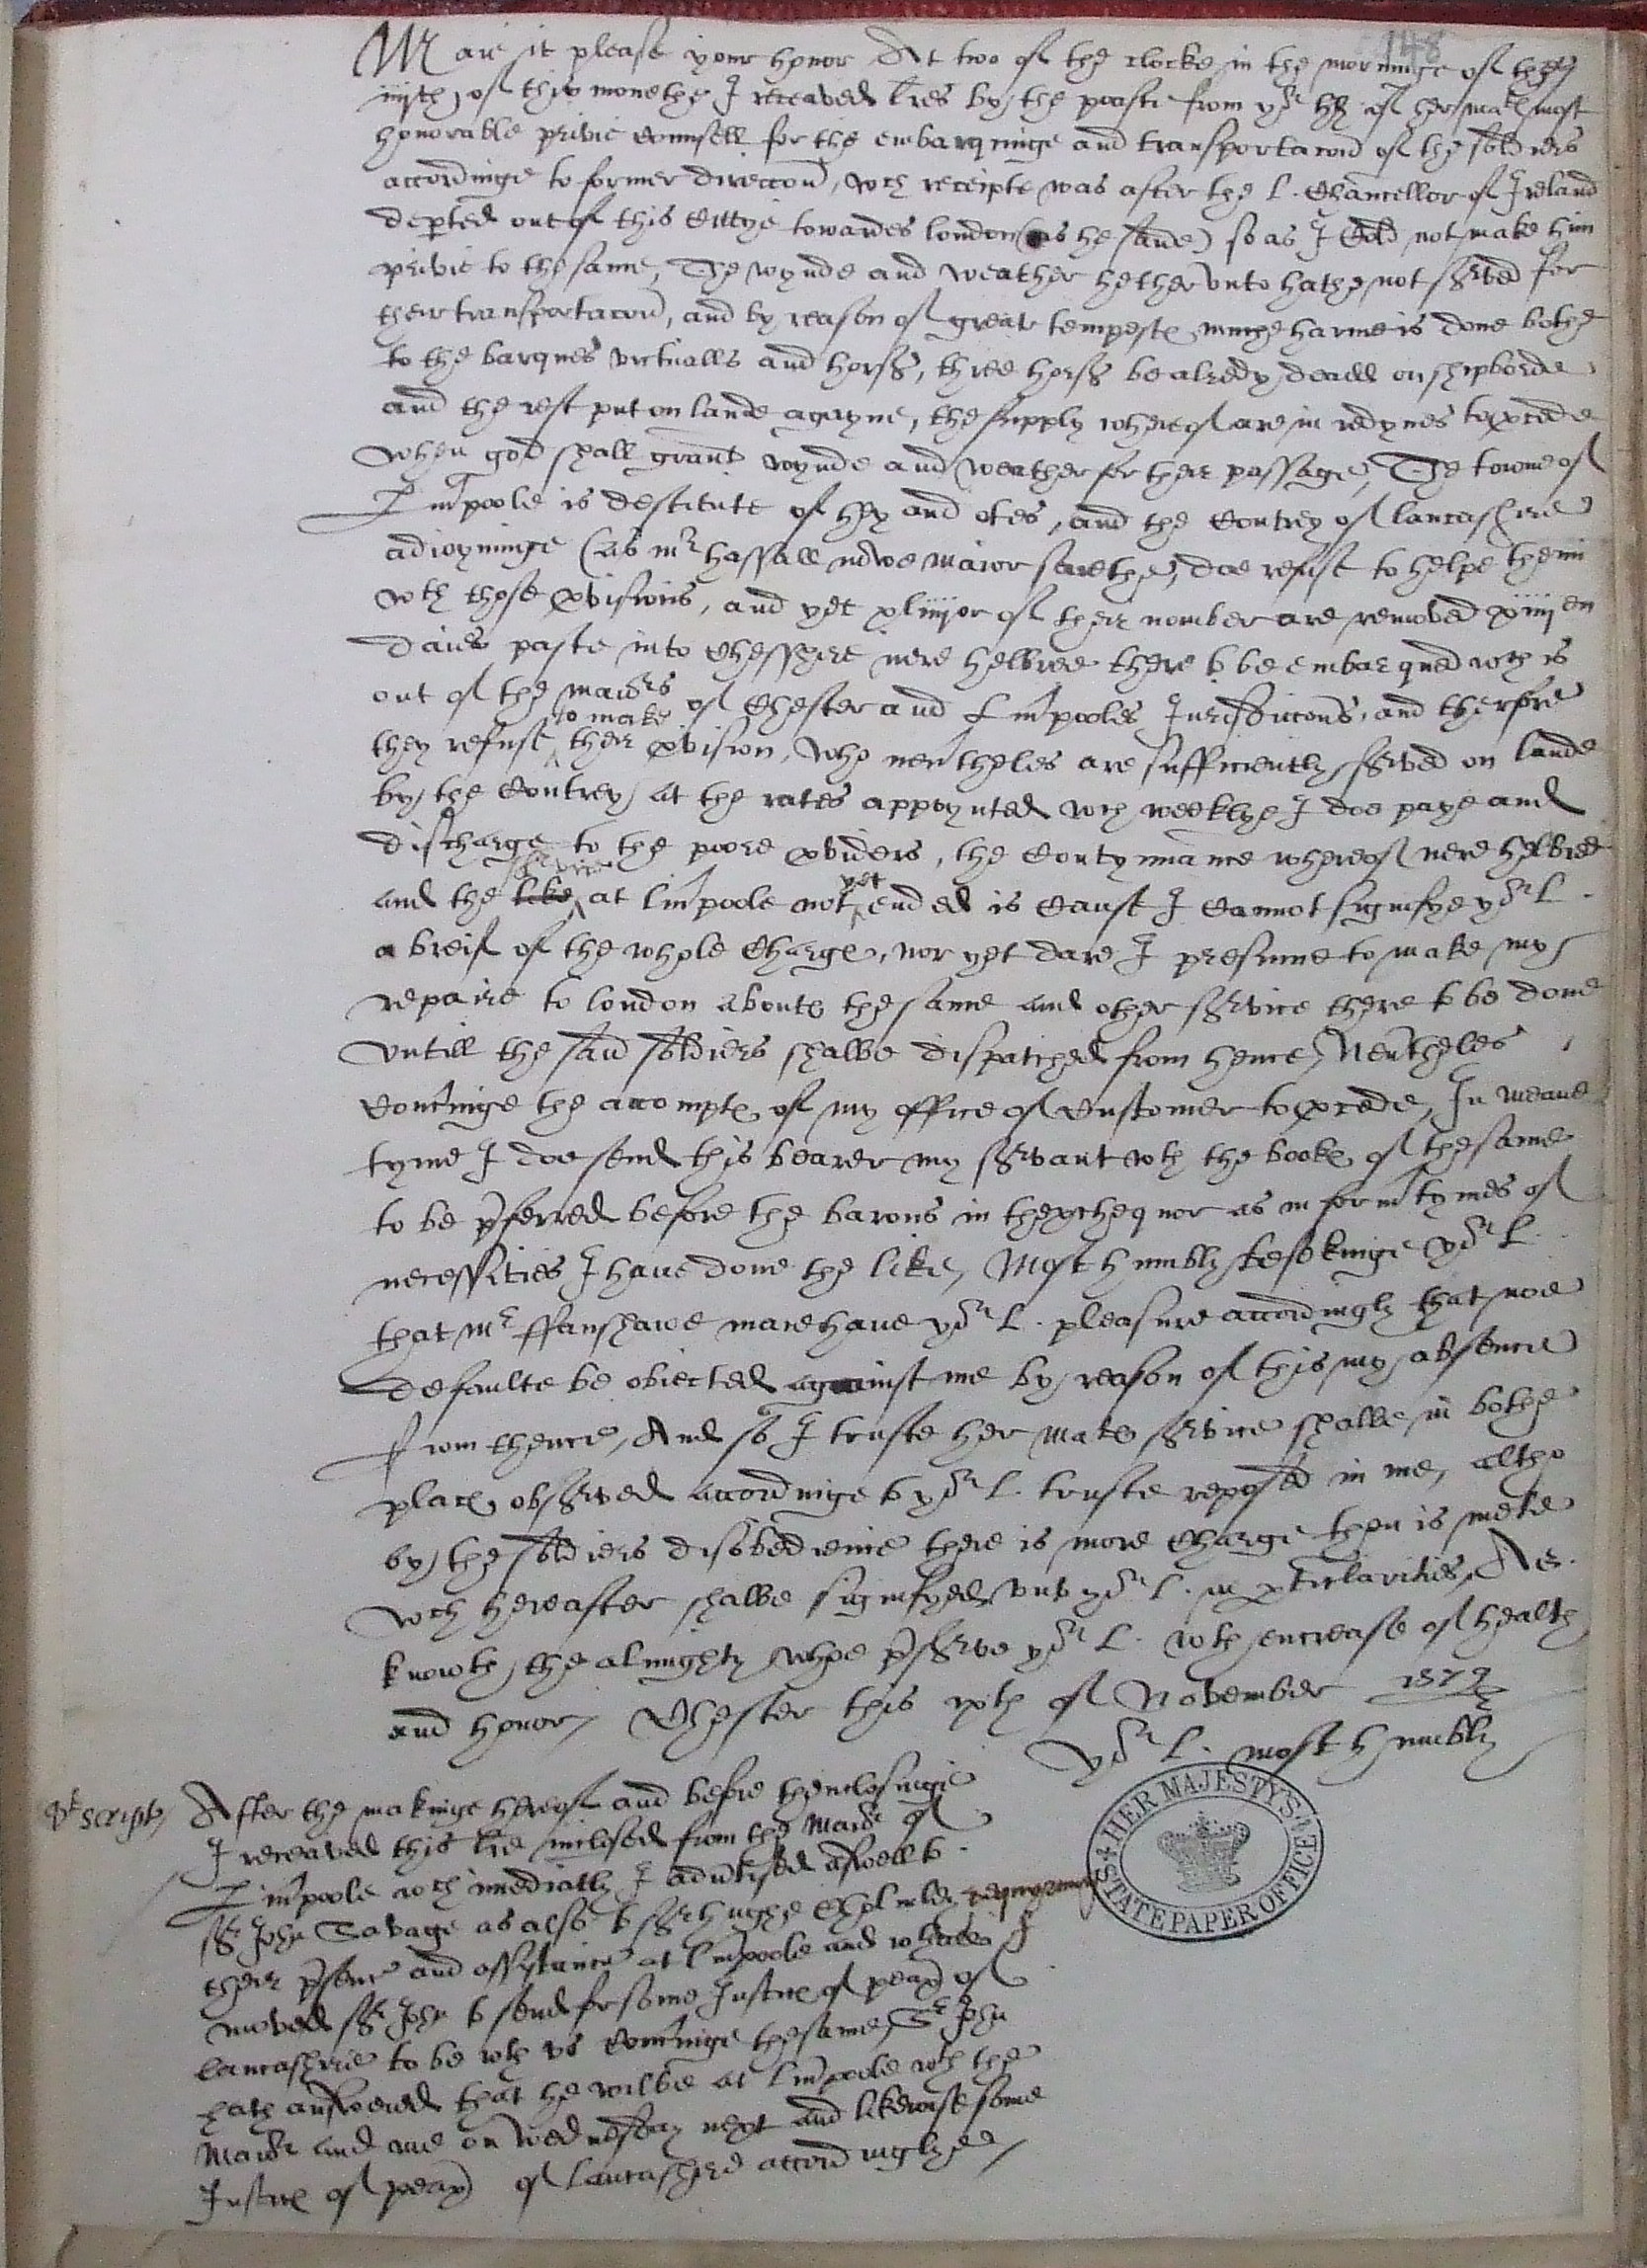 148
Maie it please your honor At two of the clocke in the morninge of the
iiijth of this monethe I receaved lres by the poaste from yor hh of her matꝭ most
honorable privie Counsell for the embarquinge and transportacon of the soldiers
accordinge to former direccon, wch receipte was after the L. Chancellor of Ireland
depted out of this Cittye towardes london (as he saide) so as I Cold not make him
privie to the same, The wynde and weather hether unto hathe not served for
their transportacon, and by reason of great tempestꝭ muche harme is done bothe
to the barques victualls and horss, three horss be alredy deade on shipborde
and the rest put on lande agayne, the supply wherof are in redynes to pcede
when god shall graunt wynde and weather for their passage, The towne of
Lirpoole is destitute of hey and otes, and the Contrey of lancashire
adioyninge (as mr hassall nowe maior saiethe) doe refuse to helpe them
wth those pvisions, and yet xliiijor of their nomber are removed xiiijen
daies paste into Chesshire nere helbree there to be embarqued wch is
out of the maiors of Chester and Lirpooles Jurisdiccons, and therfore
they refuse to make their pvision, who nevtheles are sufficiently served on lande
by the Contrey at the rates appoynted wch weeklye I doe paye and
discharge to the poore pviders, the Contynuance wherof nere helbree
and the like service at lirpoole not yet ended is Cause I Cannot signifye yor L.
a breif of the whole Charge, nor yet dare I presume to make my
repaire to london aboute the same and other service there to be done
untill the said soldiers shalbe dispatched from hence, Nevtheles
Concninge the accomptꝭ of my office of Customer to pcede, In meane
tyme I doe send this bearer my servant wth the bookꝭ of the same
to be pferred before the barons in thexchequor as in formr tymes of
necessities I have done the like, Most humbly besekinge yor L.
that mr ffanshawe maie have yor L. pleasure accordingly that noe
defaulte be obiected against me by reason of this my absence
from thence, And so I truste her matꝭ service shalbe in bothe
placꝭ observed accordinge to yor L. truste reposed in me, altho
by the soldiers disobedience there is more Charge then is mete
wch hereafter shalbe signifyed unto yor L. in pticlarities, As
knowth the almighty whoe pserve yor L. wth encrease of health
and honor, Chester this xth of November 1579
yor L. most humbly
Pt script, After the makinge hereof and before thenclosinge
I receaved this lre inclosed from the Maior of
Lirpoole wch imediatly I advtised aswell to
Sr John Savage as also to Sr hughe Cholmley requyringe
their psence and assistance at lirpoole and
moved Sr John to send for some Justicꝭ of peax of
lancashire to be wth us Concninge the same, Sr John
hath answered that he wilbe at lirpoole wth the
Maior and me on wednesday next and likewise some
Justicꝭ of peax of lancashire accordinglye,
HER MAJESTY'S STATE PAPER OFFICE